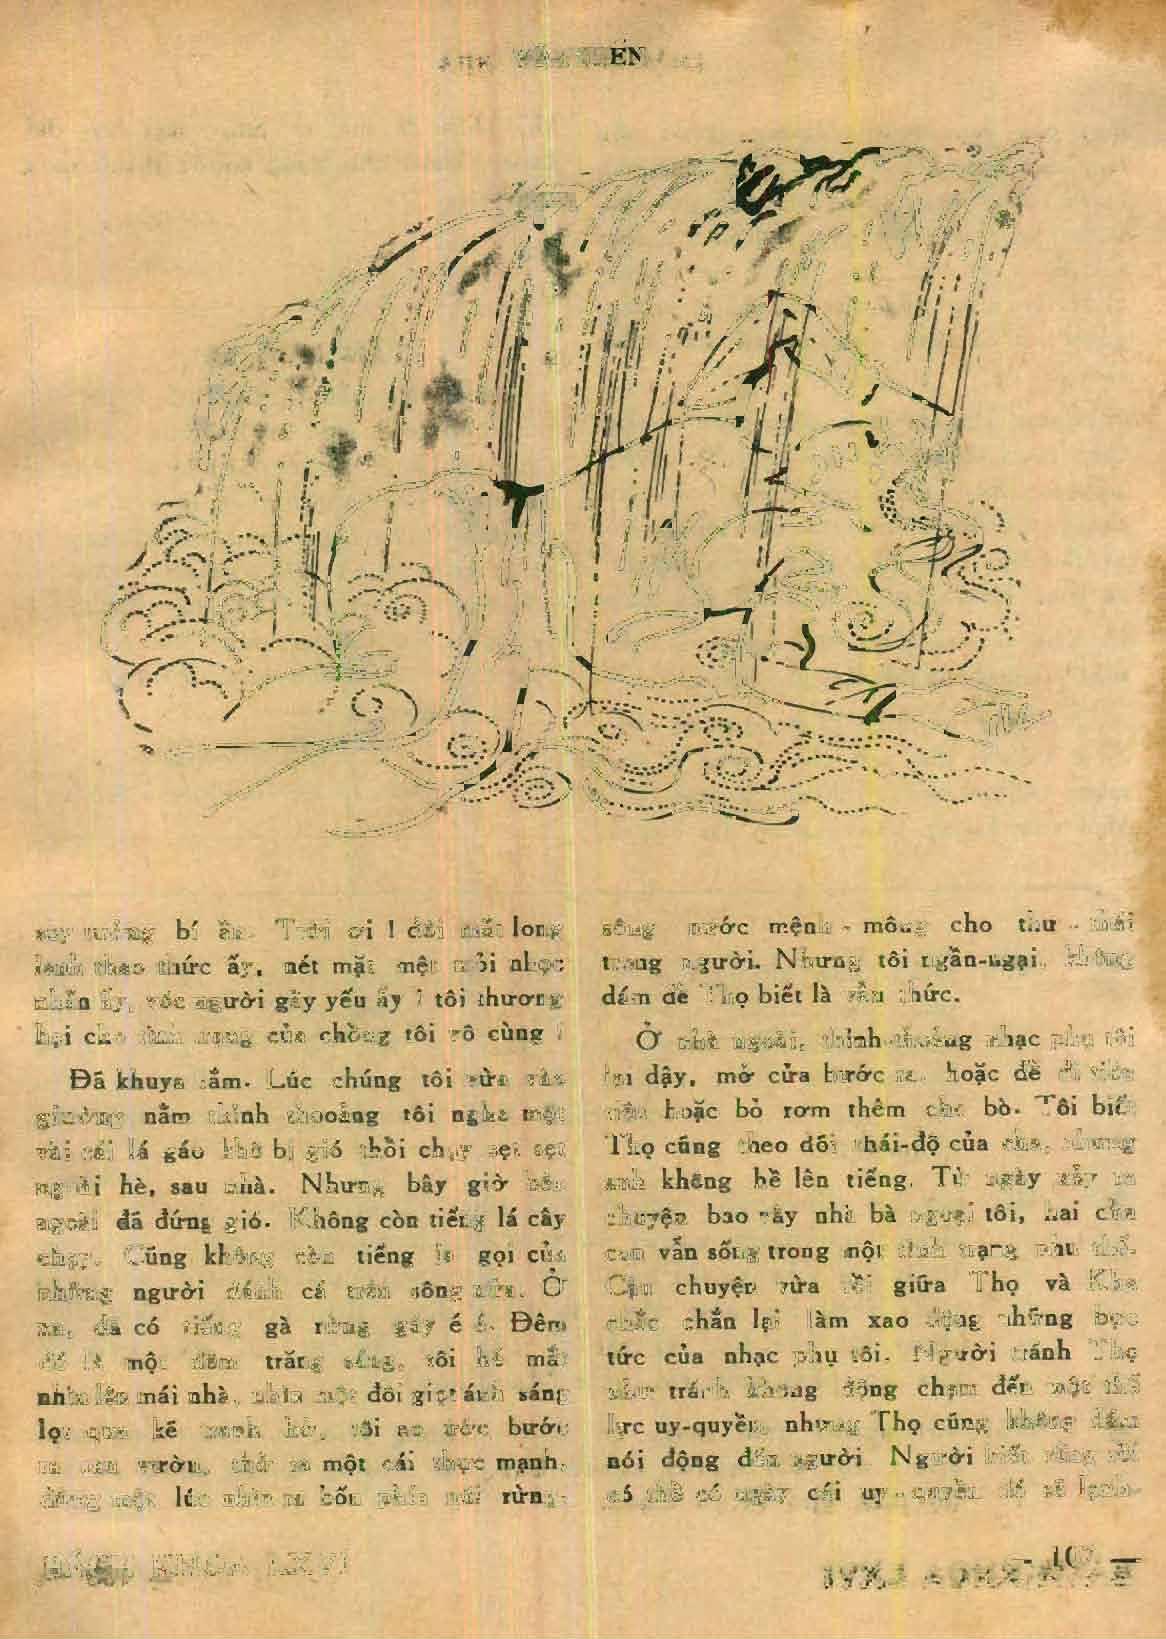 ÊN
bí ẩn. Trời ơi ! đôi mắt long
lanh thao thức ấy, nét mặt mệt mỏi nhọc
nhằn ấy, vóc người gầy yếu ấy ! tôi thương
hại cho tình trạng của chồng tôi vô cùng !
Đã khuya lắm. Lúc chúng tôi vừa vào
giường nằm thỉnh thoảng tôi nghe một
vài cái lá gáo khô bị gió thổi chạy sẹt sẹt
ngoài hè, sau nhà. Nhưng bây giờ bên
ngoài đã đứng gió. Không còn tiếng lá cây
chạy. Cũng không còn tiếng la gọi của
những người đánh cá trên sông nữa. Ở
xa, đã có tiếng gà rừng gáy é é. Đêm
đó là một đêm trăng sáng, tôi hé mắt
nhìn lên mái nhà, nhìn một đôi giọt ánh sáng
lọt qua kẽ hở, tôi ao ước bước
ra sau vườn, thở ra một cái thực mạnh,
đứng một lúc nhìn ra bốn phía núi rừng,
sông nước mệnh - mông cho thư - thái
trong người. Nhưng tôi ngần-ngại, không
dám để Thọ biết là vẫn thức.
Ở nhà ngoài, thỉnh-thoảng nhạc phụ tôi
lại dậy, mở cửa bước ra, hoặc để đi
hoặc bỏ rơm thêm cho bò. Tôi biết
Thọ cũng theo dõi thái-độ của cha, nhưng
anh không hề lên tiếng. Từ ngày xảy ra
chuyện bao vây nhà bà ngoại tôi, hai cha
con vẫn sống trong một tình trạng như thế.
Câu chuyện vừa rồi giữa Thọ và Kha
chắc chắn lại làm xao động những bực
tức của nhạc phụ tôi. Người tránh Thọ
như tránh không động chạm đến một thế
lực uy-quyền, nhưng Thọ cũng không dám
nói động đến người. Người biết rằng rồi
có thể có ngày cái uy - quyền đó sẽ
BÁCH KHOA LXVI
— 107 —